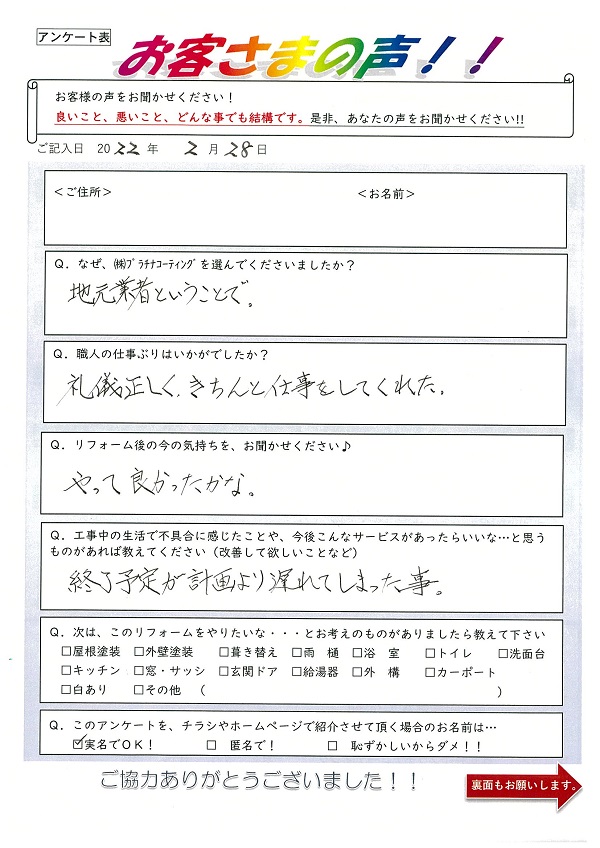 アンケート表
お客さまの声！！
お客様の声をお聞かせください！
良いこと、悪いこと、どんな事でも結構です。是非、あなたの声をお聞かせください!!
ご記入日　2022 年　2 月 28 日
＜ご住所＞　＜お名前＞
Q．なぜ、㈱ﾌﾟﾗﾁﾅｺｰﾃｨﾝｸﾞを選んでくださいましたか？
地元業者ということで。
Q．職人の仕事ぶりはいかがでしたか？
礼儀正しく、きちんと仕事をしてくれた。
Q．リフォーム後の今の気持ちを、お聞かせください♪
やって良かったかな。
Q．工事中の生活で不具合に感じたことや、今後こんなサービスがあったらいいな…と思う
ものがあれば教えてください（改善して欲しいことなど）
終了予定が計画より遅れてしまった事。
Q．次は、このリフォームをやりたいな・・・とお考えのものがありましたら教えて下さい
□屋根塗装　□外壁塗装　□葺き替え　□雨　樋　□浴　室　□トイレ　□洗面台
□キッチン　□窓・サッシ　□玄関ドア　□給湯器　□外　構　□カーポート
□白あり　□その他　（　）
Q．このアンケートを、チラシやホームページで紹介させて頂く場合のお名前は…
☑実名でOK！　□　匿名で！　□　恥ずかしいからダメ！！
ご協力ありがとうございました！！
裏面もお願いします。